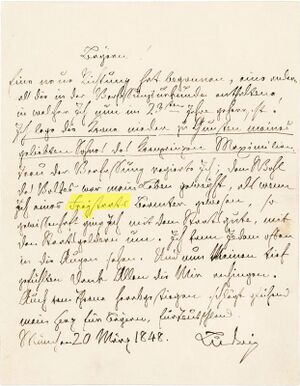 Bayern!
Eine neue Richtung hat begonnen, eine andere
als die in der Verfassungsurkunde enthaltene
in welcher Ich nun im 23ten Jahre geherrscht.
Ich lege die Krone nieder zu Gunsten meines
geliebten Sohnes, des Kronprinzen Maximilian.
Treu der Verfassung regierte Ich; dem Wohl
des Volkes war mein Leben geweiht, als wenn
ich eines Freistaats Beamter gewesen, so
gewissenhaft ging ich mit dem Staatsgute, mit
den Staatsgeldern um. Ich kann Jedem offen
in die Augen sehen. Und nun Meinen tief
gefühlten Dank Allen die Mir anhingen.
Auch vom Throne herabgestiegen, schlägt glühend
mein Herz für Bayern, für Teutschland.
München 20 März 1848. Ludwig